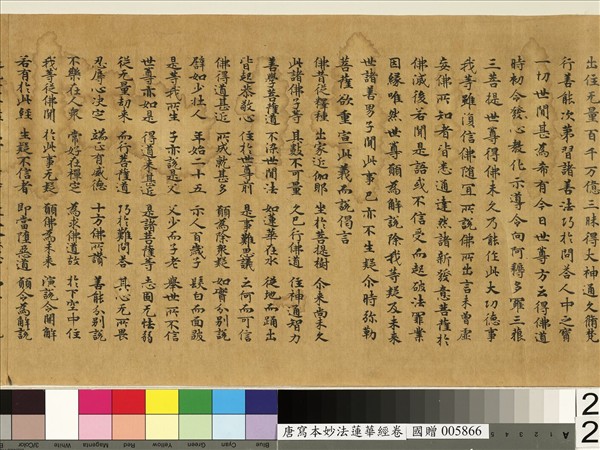 出住无量百千万億三昧得大神通久脩梵
行善能次第習諸善法巧於問荅人中之寶
一切世間甚為希有今日世尊方云得佛道
時初令發心教化示導令向阿耨多羅三藐
三菩提世尊得佛未久乃能作此大功德事
我等雖復信佛隨宜所說佛所出言未曾虛
妄佛所知者皆悉通達然諸新發意菩薩於
佛滅後若聞是語或不信受而起破法罪業
因緣唯然世尊願為解說除我等疑及未來
世諸善男子聞此事已亦不生疑尒時弥勒
菩薩欲重宣此義而說偈言
佛昔從釋種 出家近伽耶 坐於菩提樹 尒來尚未久
此諸佛子等 其數不可量 久已行佛道 住神通智力
善學菩薩道 不染世間法 如蓮華在水 從地而踊出
皆起恭敬心 住於世尊前 是事難思議 云何而可信
佛得道甚近 所成就甚多 願為除眾疑 如實分別說
譬如少壯人 年始二十五 示人百歲子 髮白而面皺
是等我所生 子亦說是父 父少而子老 舉世所不信
世尊亦如是 得道來甚近 是諸菩薩等 志固无怯弱
從无量劫來 而行菩薩道 巧於難問荅 其心无所畏
忍辱心決定 端正有威德 十方佛所讚 善能分別說
不樂在人眾 常好在禪定 為求佛道故 於下空中住
我等從佛聞 於此事无疑 願佛為未來 演說令開解
若有於此經 生疑不信者 即當墮惡道 願今為解說
3/Color White Magenta Red Yellow Green Cyan Blue
唐寫本妙法蓮華經卷 國贈 005866
A
2
2